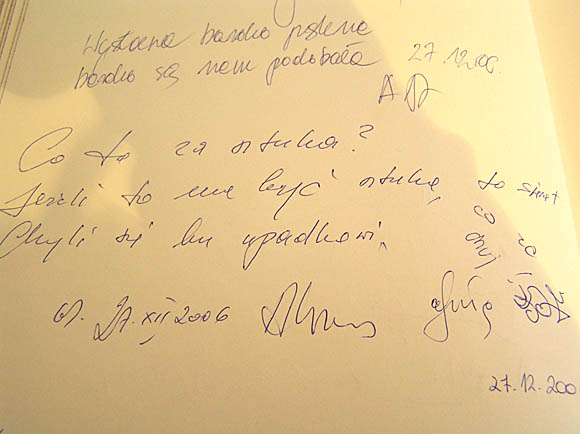 Wystawa bardzo piękna
bardzo się nam podobała 27.12.06.
Co to za sztuka?
Jeżeli to ma być sztuka, to świat
chyli się ku upadkowi.
co za
chuj
W. 27.XII.2006
27.12.200